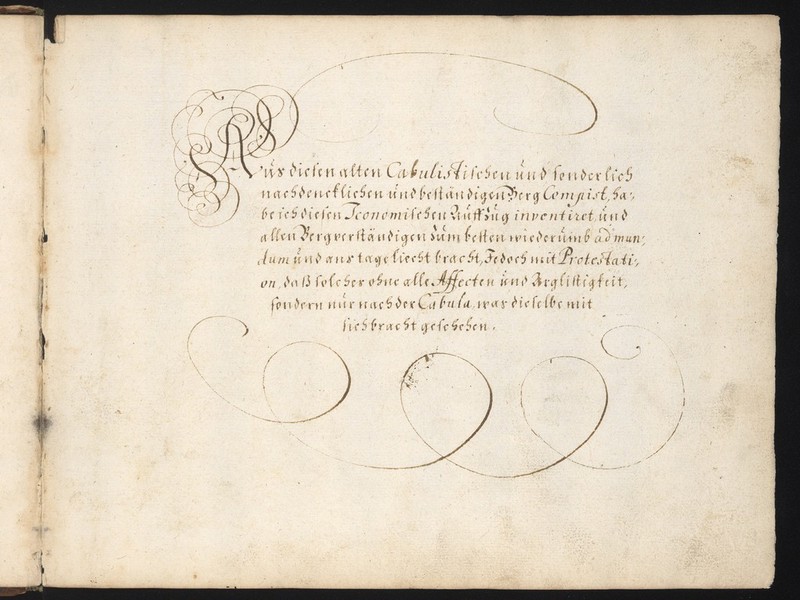 Aus diesen alten Cabulistischen und sonderlich
nachdencklichen und beständigen Berg Compist, ha-
be ich diesen Iconomischen Auffzug inventiret, und
allen Bergverständigen zum besten wiederumb ad mun-
dum und ans tageliecht bracht, Jedoch mit Protestati-
on, daß solcher ohne alle Affecten und Arglistigkeit,
sondern nur nach der Cabula, was dieselbe mit
sich bracht geschehen.